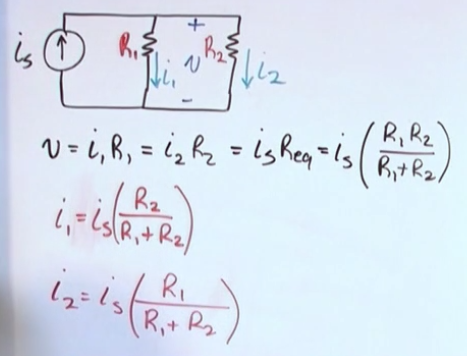 is R₁ + R₂
i₁ v i₂
-
v = i₁R₁ = i₂R₂ = isReq = is(R₁R₂/R₁+R₂)
i₁ = is(R₂/R₁+R₂)
i₂ = is(R₁/R₁+R₂)